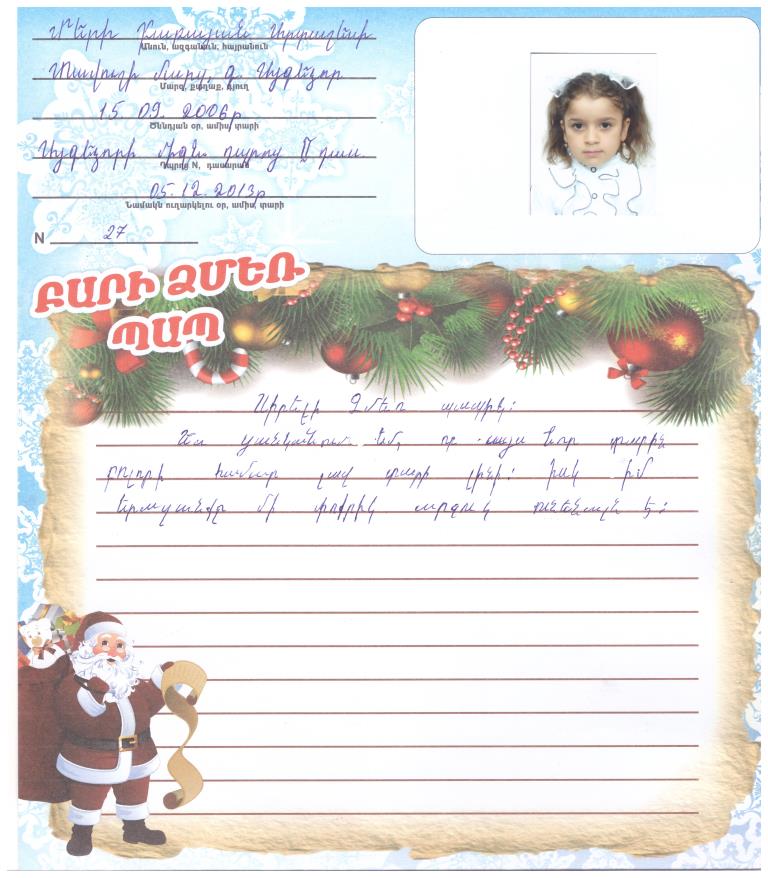 Մերի
Անուն, ազգանուն, հայրանուն
Տավուշի մարզ, գ. Այգեձոր
Մարզ, քաղաք, գյուղ
15. 09. 2006թ
Ծննդյան օր, ամիս, տարի
Այգեձորի միջն. դպրոց II դաս.
Դպրոց N, դասարան
05.12.2013թ
Նամակն ուղարկելու օր, ամիս, տարի
N 27
ԲԱՐԻ ՁՄԵՌ
ՊԱՊ
Սիրելի Ձմեռ պապիկ:
Ես ցանկանում եմ, որ այս նոր տարին
բոլորի համար լավ տարի լինի: Իսկ իմ
երազանքը մի փոքրիկ արջուկ ունենալն է: